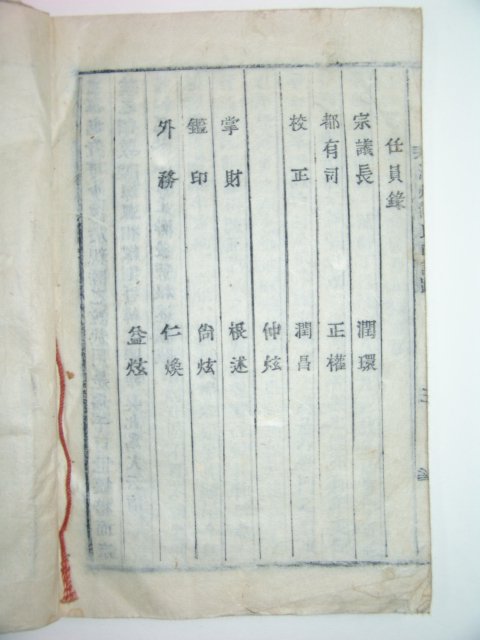 任員錄
宗議長 潤環
都有司 正權
校正 潤昌
仲炫
掌財 根述
鑑印 尙炫
外務 仁煥
益炫